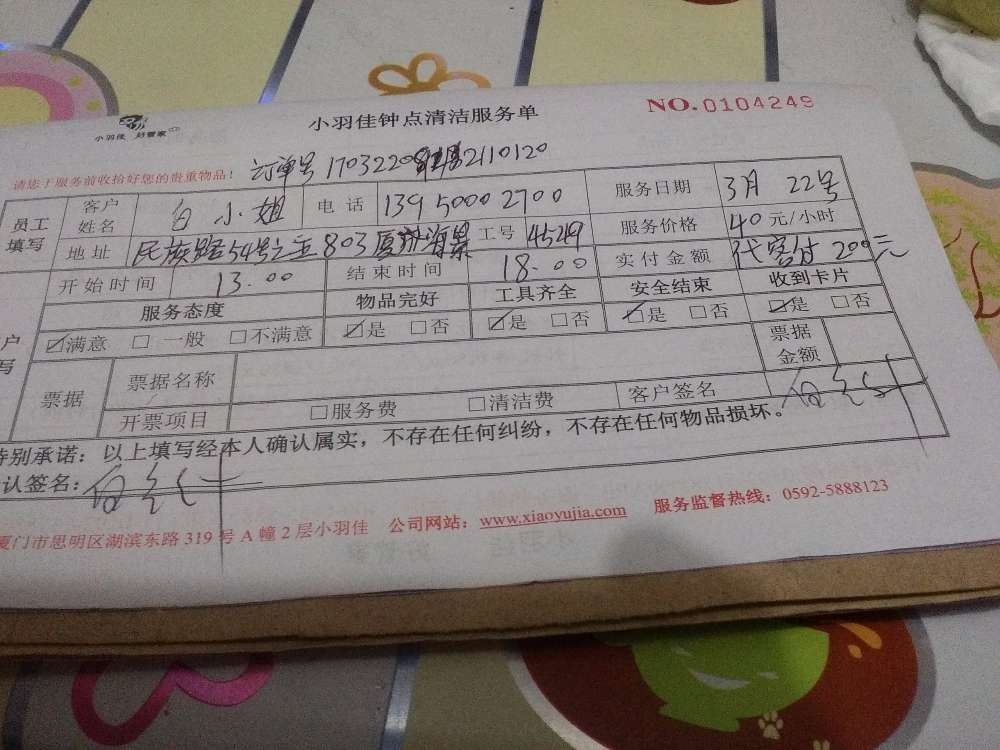 小羽佳 好管家
小羽佳钟点清洁服务单
NO.0104249
请您于服务前收拾好您的贵重物品！
订单号 1703220 2110120
员工填写 客户姓名 白小姐 电话 13950002700 服务日期 3月 22号
地址 民族路54号之 803厦 海景 工号 4549 服务价格 40元/小时
开始时间 13.00 结束时间 18.00 实付金额 代客付200元
服务态度 物品完好 工具齐全 安全结束 收到卡片
☑满意 □一般 □不满意 ☑是 □否 ☑是 □否 ☑是 □否 ☑是 □否
户
写
票据 票据名称 票据金额
开票项目 □服务费 □清洁费 客户签名
特别承诺：以上填写经本人确认属实，不存在任何纠纷，不存在任何物品损坏。
认签名：
厦门市思明区湖滨东路 319 号 A 幢 2 层小羽佳 公司网站：www.xiaoyujia.com 服务监督热线：0592-5888123